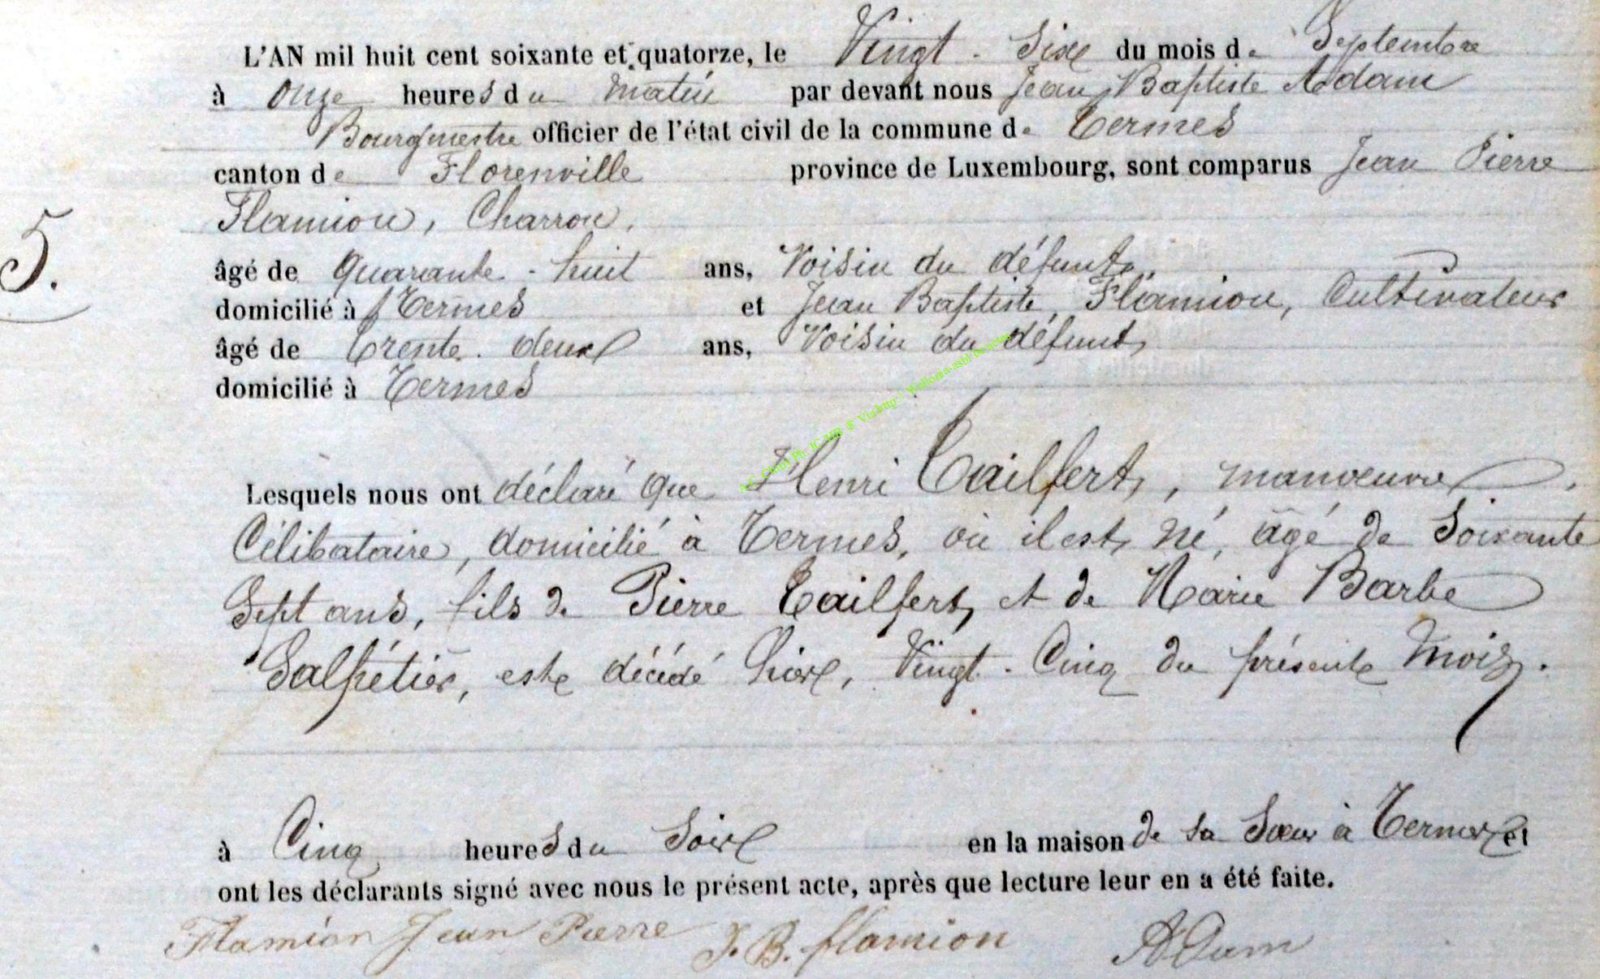 L'AN mil huit cent soixante et quatorze, le Vingt-Six du mois de Septembre
à Onze heures du Matin par devant nous Jean Baptiste Adam
Bourgmestre officier de l'état civil de la commune de Termes
canton de Florenville province de Luxembourg, sont comparus Jean Pierre
Flamion, Charron.
5.
âgé de Quarante-huit ans, Voisin du défunt,
domicilié à Termes et Jean Baptiste Flamion, Cultivateur
âgé de trente-deux ans, Voisin du défunt,
domicilié à Termes
Lesquels nous ont déclaré que Henri Tailfert, manœuvre,
Célibataire, domicilié à Termes, où il est né, âgé de Soixante
Sept ans, fils de Pierre Tailfert, et de Marie Barbe
Salpétier, este décédé hier, Vingt-Cinq du présente Mois.
à Cinq heures du Soir en la maison de sa Sœur à Termes et
ont les déclarants signé avec nous le présent acte, après que lecture leur en a été faite.
Flamion Jean Pierre J. B. flamion Adam